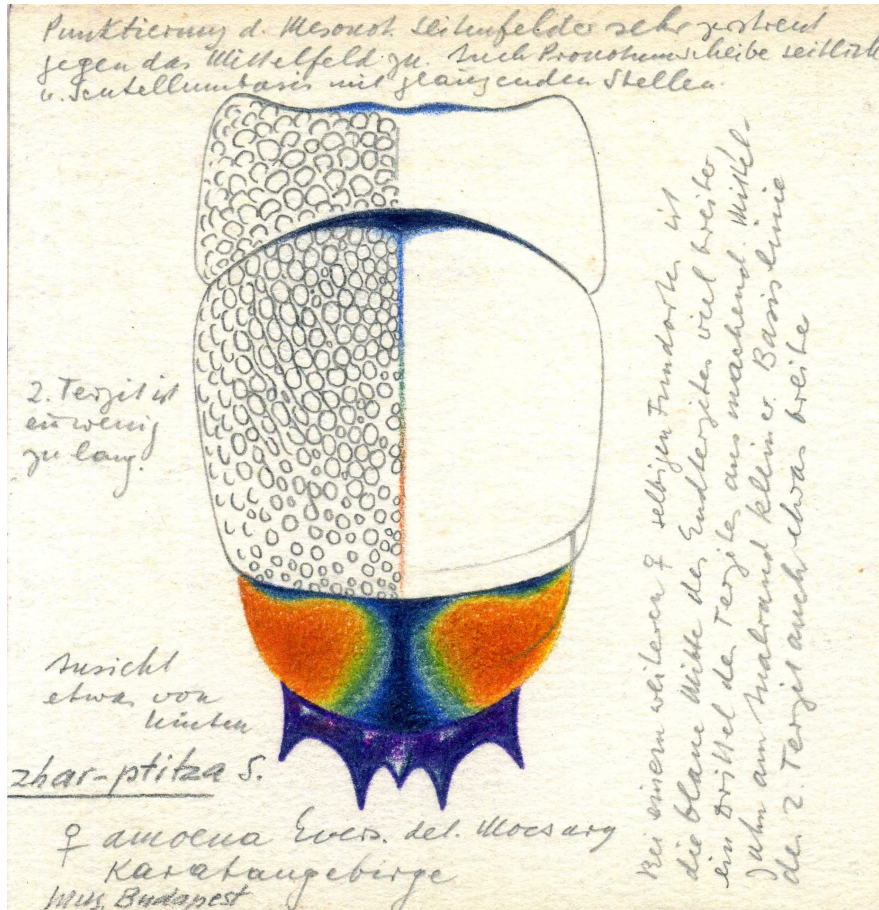 Punktierung d. Mesonot. Seitenfelder sehr zerstreut
gegen das Mittelfeld zu. Auch Pronotumscheibe seitlich
u. Scutellumbasis mit glänzenden Stellen.
2. Tergit ist
ein wenig
zu lang.
Ansicht
etwas von
hinten
zhar-ptitza S.
♀ amoena Evers. det. Mocsary
Karatangebirge
Mus. Budapest
Bei einem weiteren ♀ selbigen Fundortes ist
die blaue Mitte des Endtergites viel breiter
ein Drittel des Tergites ausmachend. Mittel-
zahn am Analrand kleiner. Basislinie
des 2. Tergit auch etwas breite